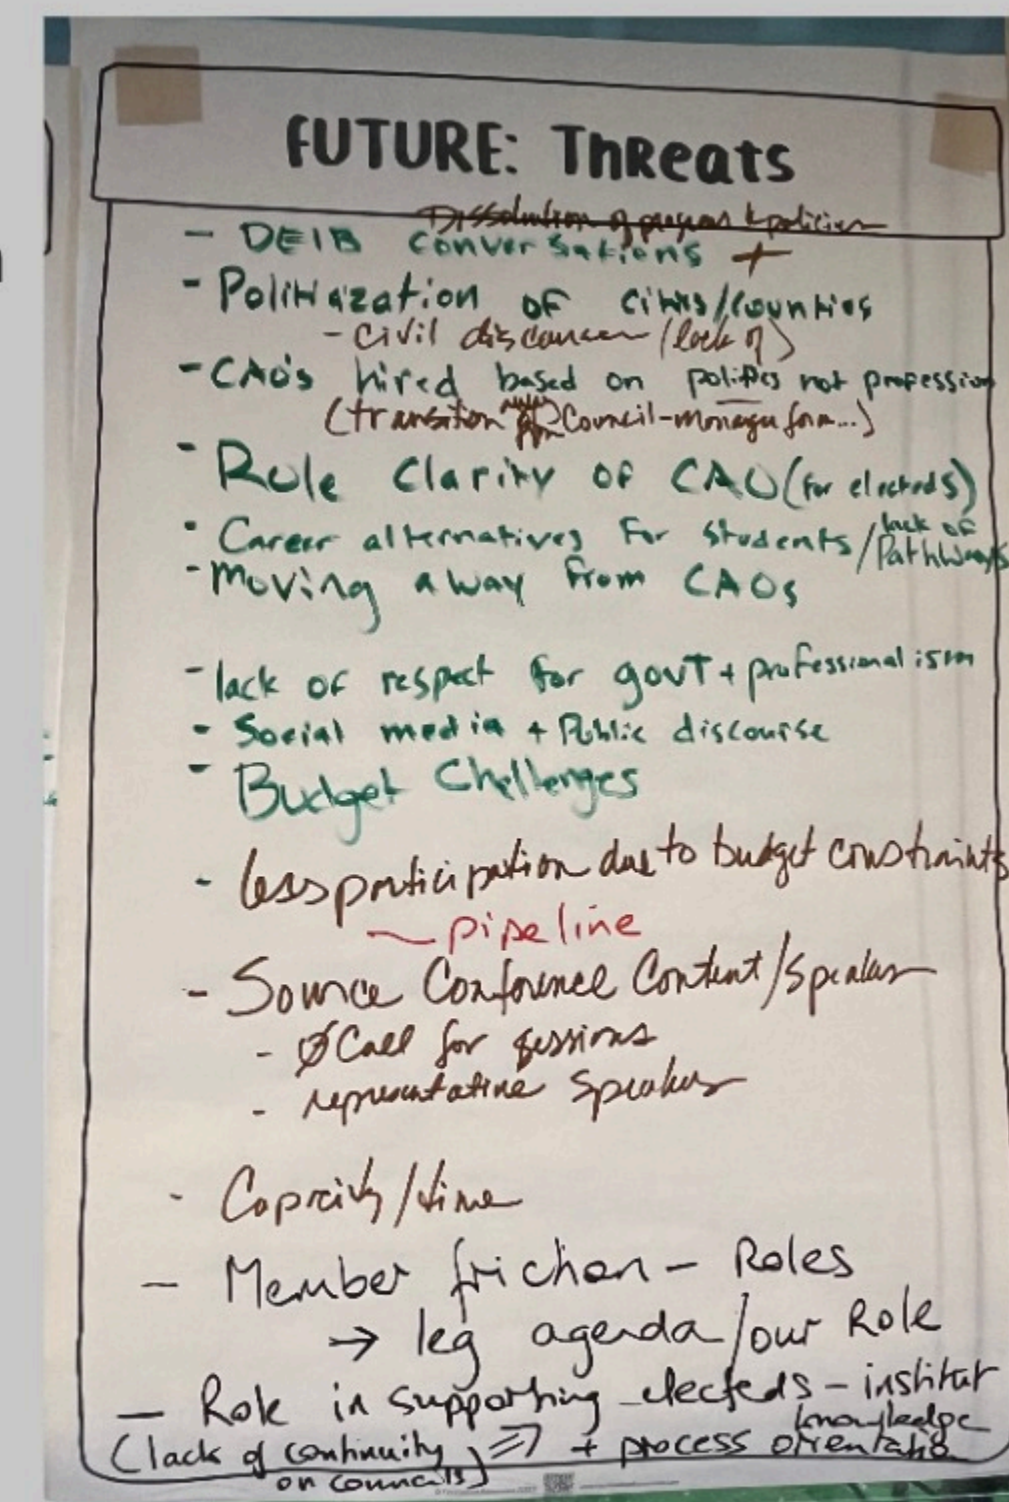 FUTURE: Threats
Dissolution of program & policies
- DEIB conversations +
- Politiazation of cities/counties
- civil discourse (lack of)
- CAO's hired based on politics not profession
(transition Council-manager form...)
- Role Clarity of CAO (for electeds)
- Career alternatives for students/lack of Pathways
- Moving away from CAOs
- lack of respect for govT + professionalism
- Social media + Public discourse
- Budget Challenges
- less participation due to budget constraints
~ pipeline
- Source Conference Content/Speakers
- Ø Call for sessions
- representative speakers
- Capacity/time
- Member friction - Roles
→ leg agenda/our Role
- Role in supporting electeds - institut knowledge
(lack of continuity on councils) ⇒ + process orientatio